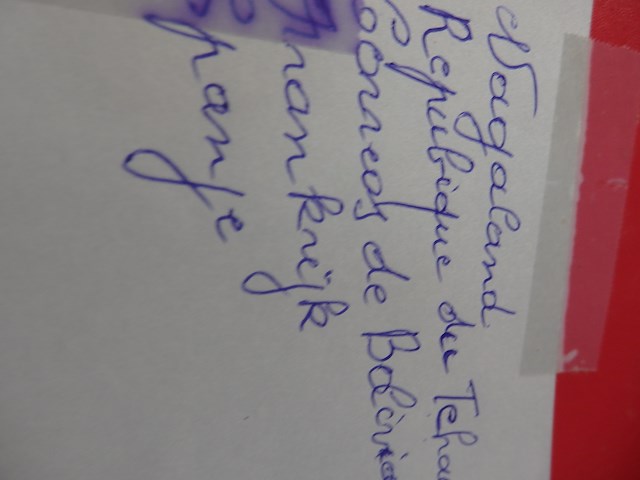 Nagaland
Repubique du Tchad
Correos de Bolivia
Frankrijk
Spanje